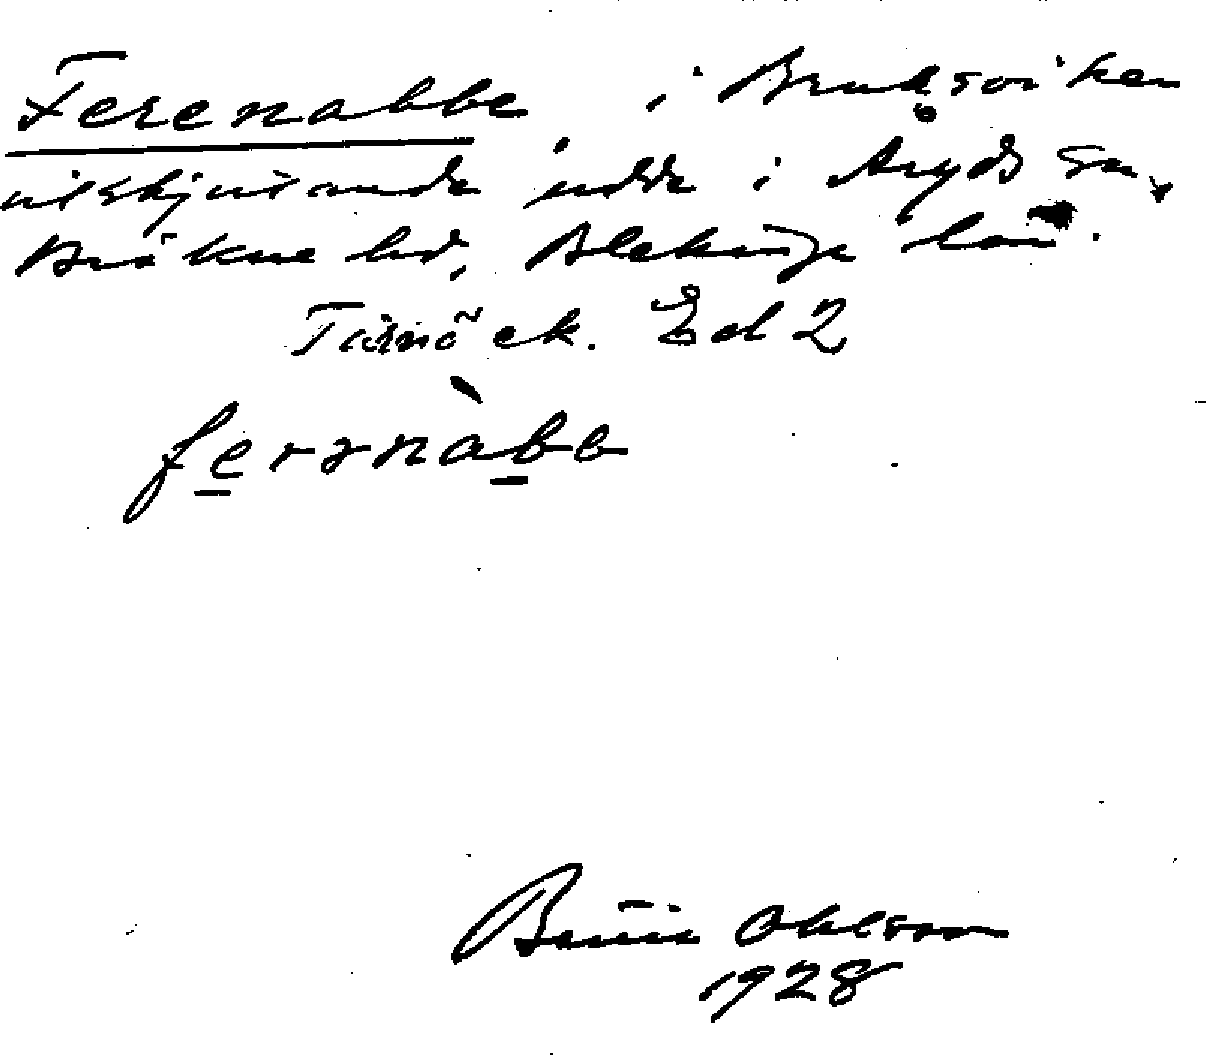 Ferenabbe i Bruksviken
utskjutande udde i Aryds sn,
Bräkne hd, Blekinge län.
Tärnö ek. Ed 2
ferənàbb
Bertil Ohlsson
1928